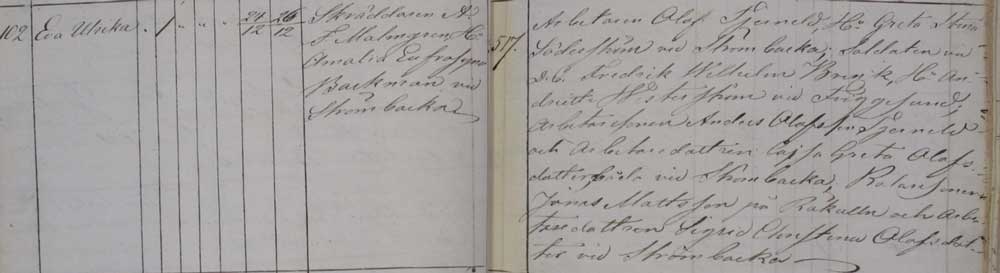 102 Eva Ulrika. 1 " " " 24/12 26/12 Skräddaren A:
F Malmgren, H:
Amalia Eufrosyna
Backman vid
Strömbacka
517. Arbetaren Olof Fjerneld, H:u Greta Stina
Söderström vid Strömbacka; Soldaten
Fredrik Wilhelm H:u An-
Westerström vid Friggesund;
Arbetaresonen Anders Olofsson Fjerneld
och Arbetaredottren Cajsa Greta Olofs-
dotter båda vid Strömbacka, Kolaresonen
Jonas Mattsson på Råkulln och Arbe-
taredottren Sigrid Christina Olofsdot-
ter vid Strömbacka